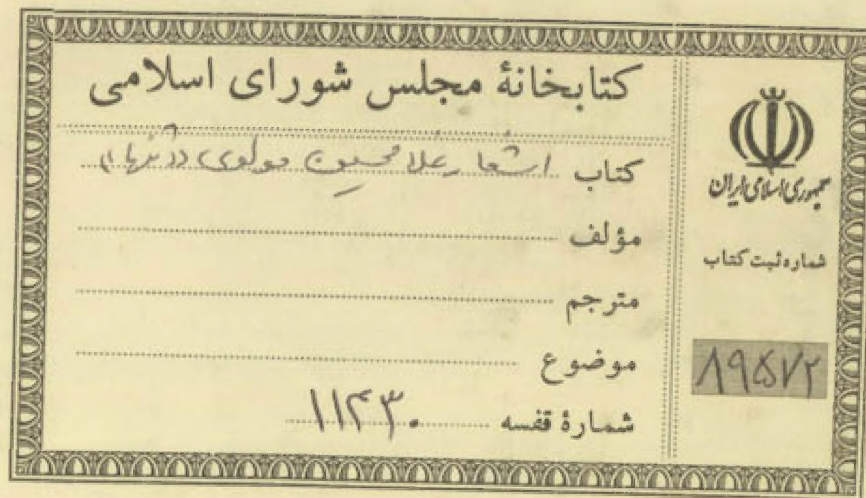 کتابخانهٔ مجلس شورای اسلامی
کتاب اشعار غلامحسین مولوی
مؤلف
مترجم
موضوع
شمارهٔ قفسه ۱۱۴۳۰
جمهوری اسلامی ایران
شماره ثبت کتاب
۸۹۵۷۲